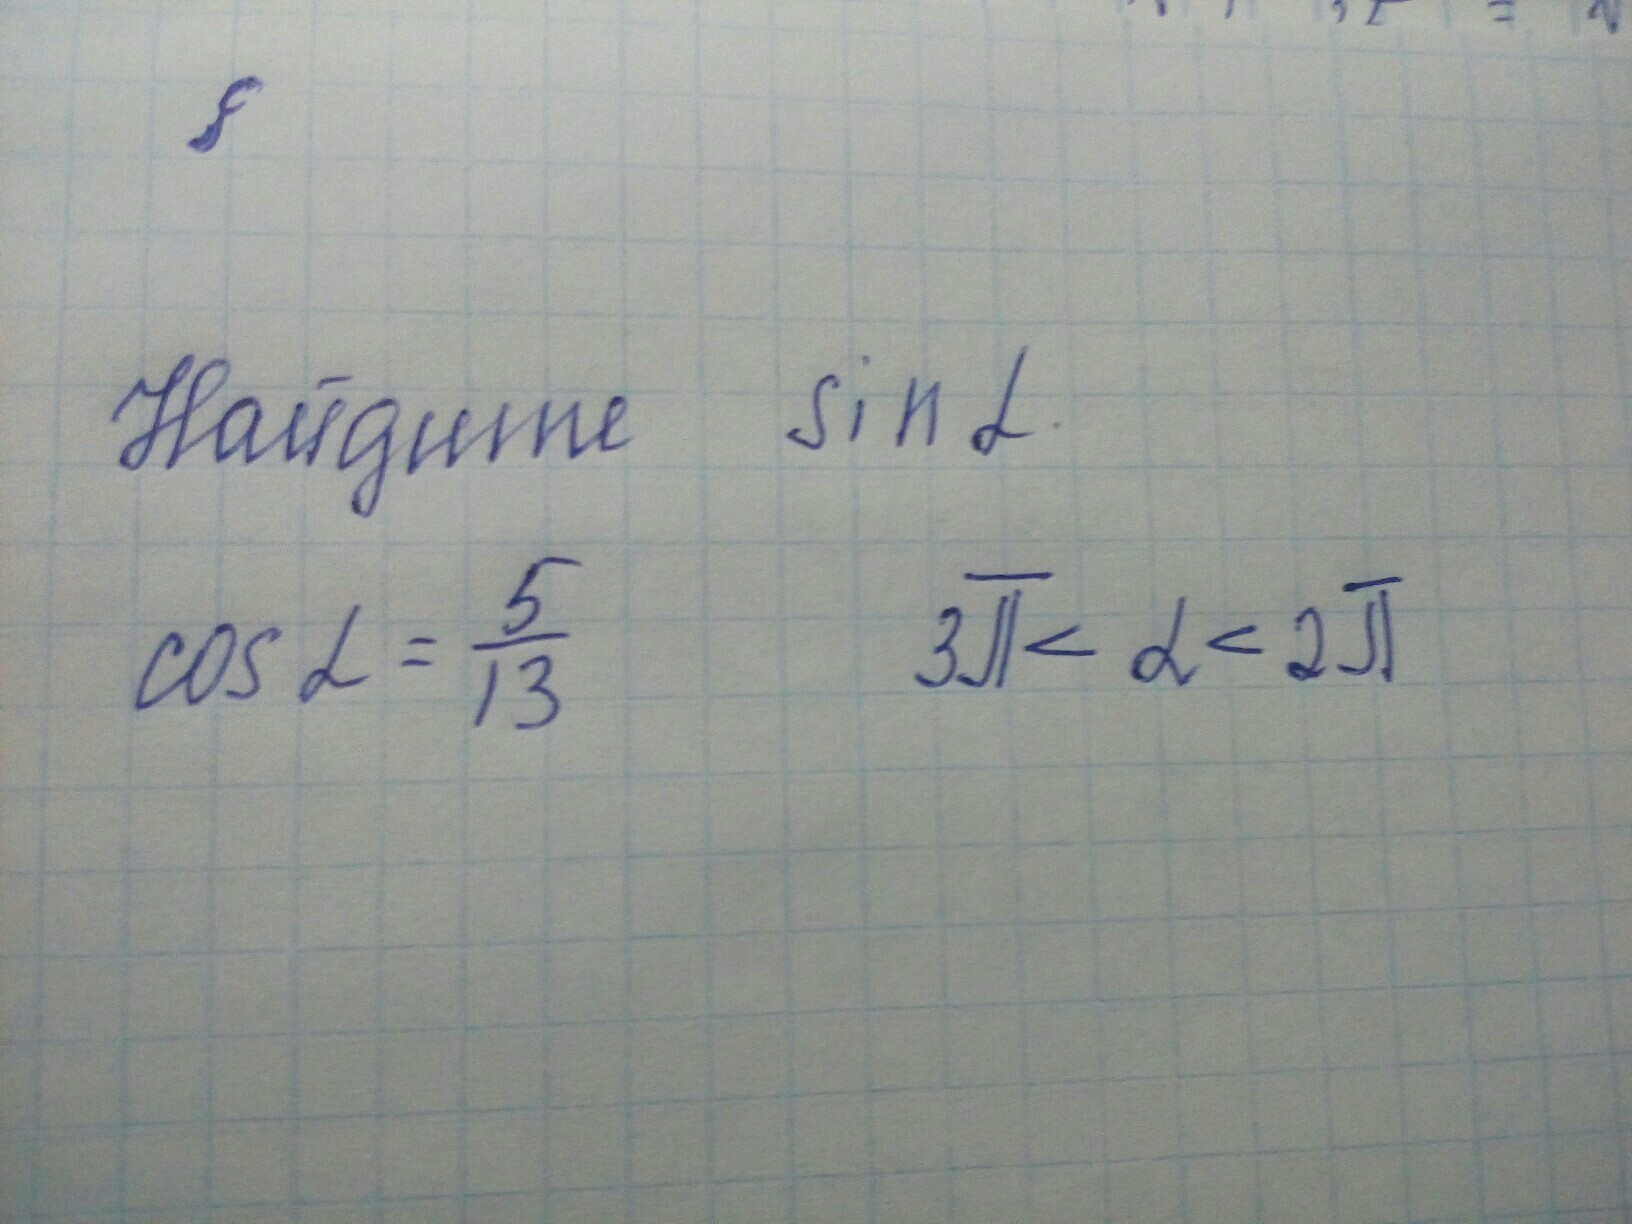 8
Найдите sin α.
cos α = 5/13    3π < α < 2π